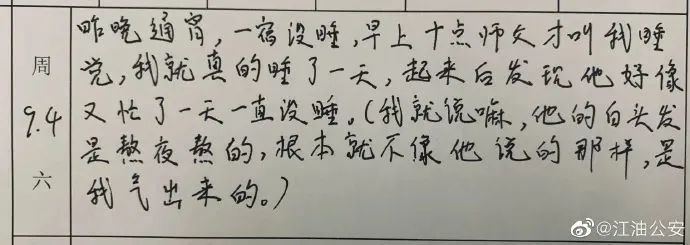 周
9.4
六
昨晚通宵，一宿没睡，早上十点师父才叫我睡
觉，我就真的睡了一天，起来后发现他好像
又忙了一天一直没睡。（我就说嘛，他的白头发
是熬夜熬的，根本就不像他说的那样，是
我气出来的。）
@江油公安